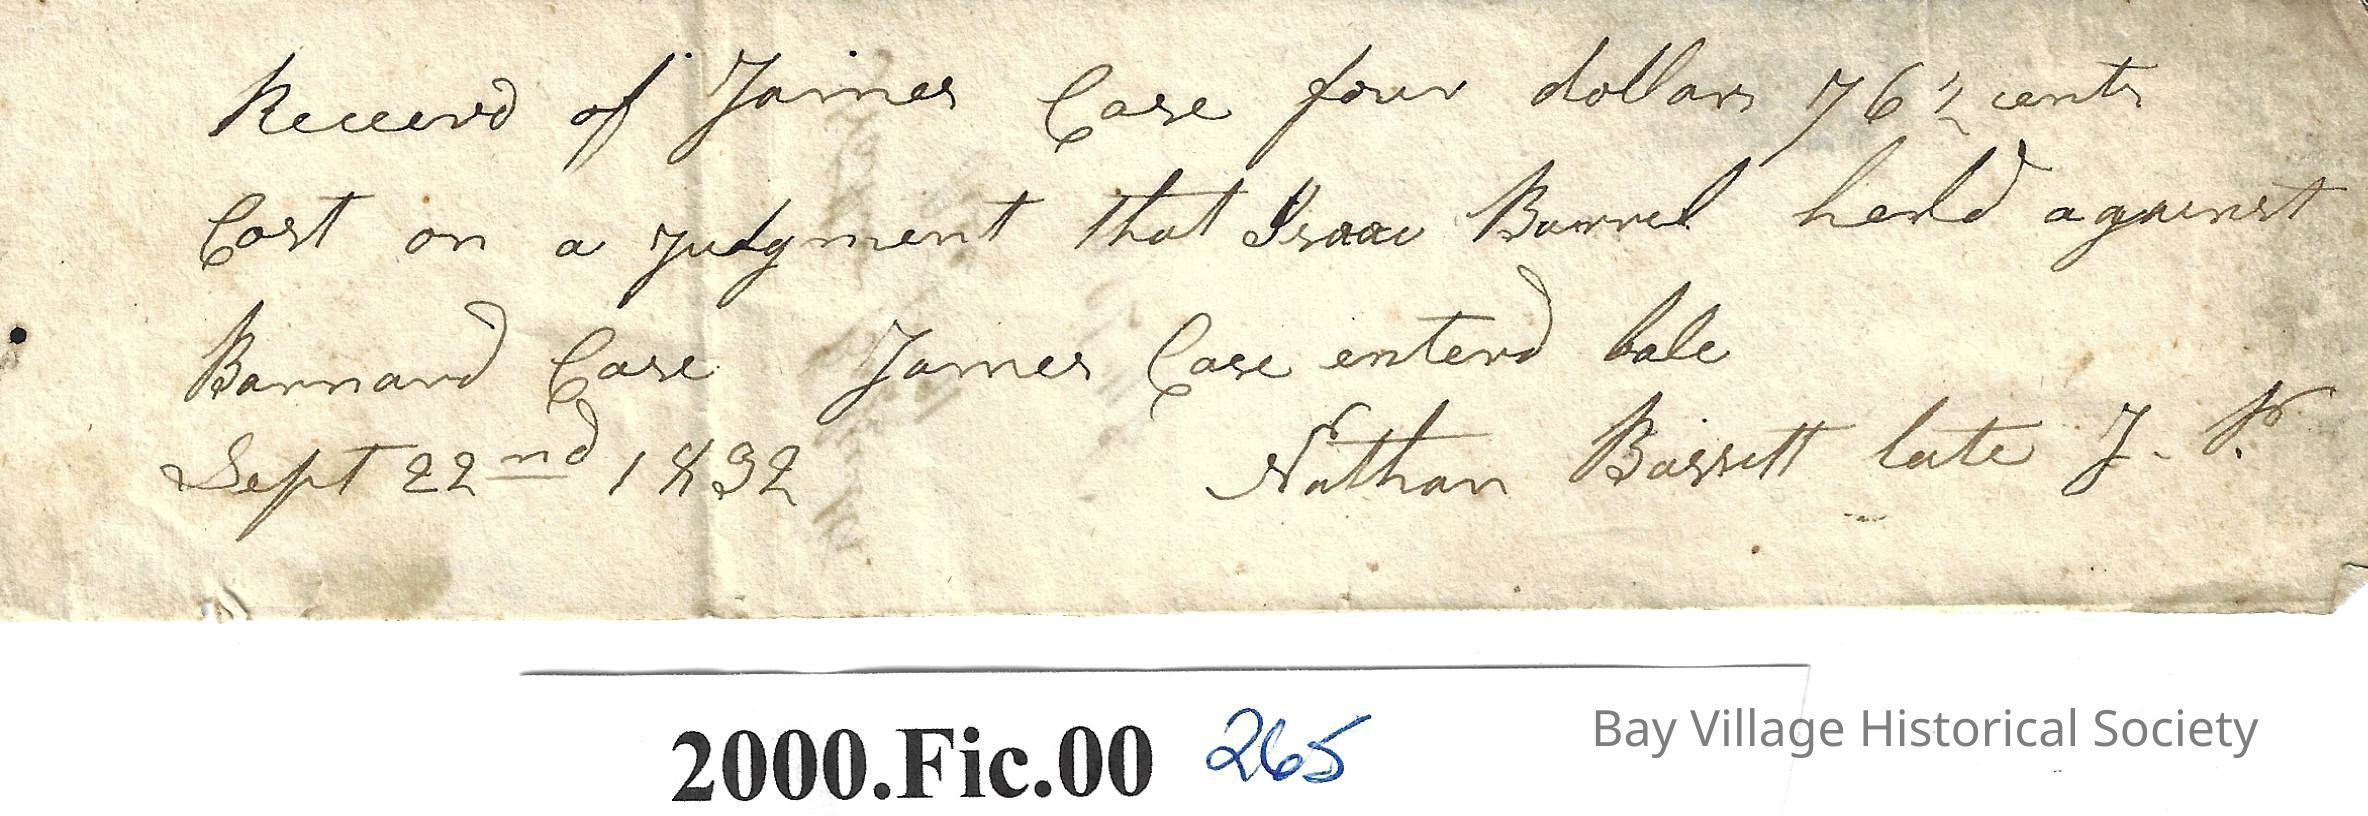 Receievd of James Case four dollars 76 ½ cents
Cost on a judgment that Isaac Burrel held against
Barnard Case James Case enterd bale
Sept 22nd 1832 Nathan Bassett late J. P.
2000.Fic.00 265
Bay Village Historical Society